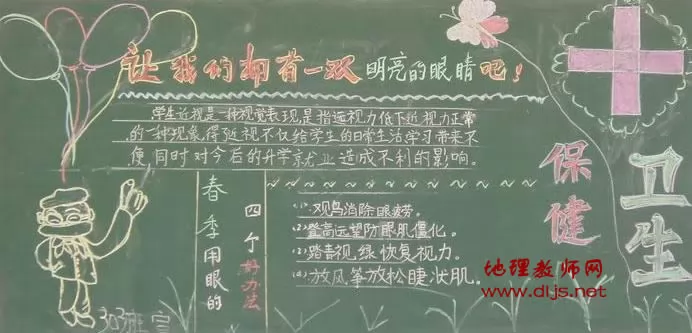 让我们拥有一双明亮的眼睛吧！
学生近视是一种视觉表现,是指远视力低下近视力正常
的一种现象,得近视不仅给学生的日常生活学习带来不
便,同时对今后的升学就业造成不利的影响。
保健
卫生
春季用眼的
四个好办法
(1).观鸟消除眼痨.
(2)登高远望防眼肌僵化.
(3)踏青视绿恢复视力.
(4)放风筝放松睫状肌.
303班宣
地理教师网
www.dljs.net